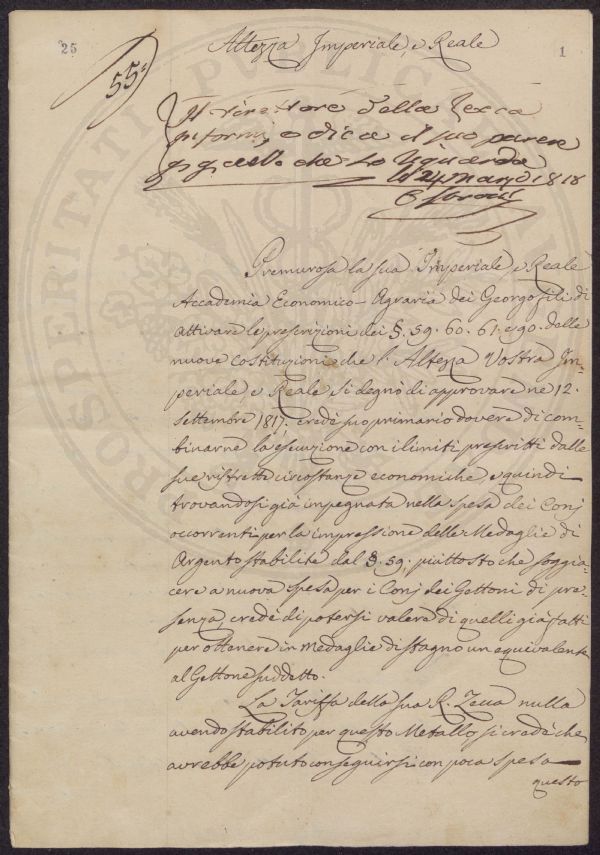 25
1
55.
Altezza Imperiale, e Reale
Il Direttore della Zecca
informi, e dica il suo parere
p. quello che Lo riguarda
li 24 Marzo 1818
Premurosa la sua Imperiale, e Reale
Accademia Economico-Agraria dei Georgofili di
attivare le prescrizioni dei §. 59. 60. 61. e 90. delle
nuove costituzioni che l'Altezza Vostra Im-
periale, e Reale si degnò di approvare ne 12.
settembre 1817. credè suo primario dovere di com-
binarne la esecuzione con i limiti prescritti dalle
sue ristrette circostanze economiche, e quindi
trovandosi già impegnata nella spesa dei Conj
occorrenti per la impressione delle Medaglie di
Argento stabilite dal §. 59. piùttosto che soggia-
cere a nuova spesa per i Conj dei Gettoni di pre-
senza, credè di potersi valere di quelli già fatti
per ottenere in Medaglie di stagno un equivalente
al Gettone suddetto.
La Tariffa della sua R. Zecca nulla
avendo stabilito per questo Metallo, si credè che
avrebbe potuto conseguirsi con poca spesa
questo
PROSPERITATI PUBLICAE